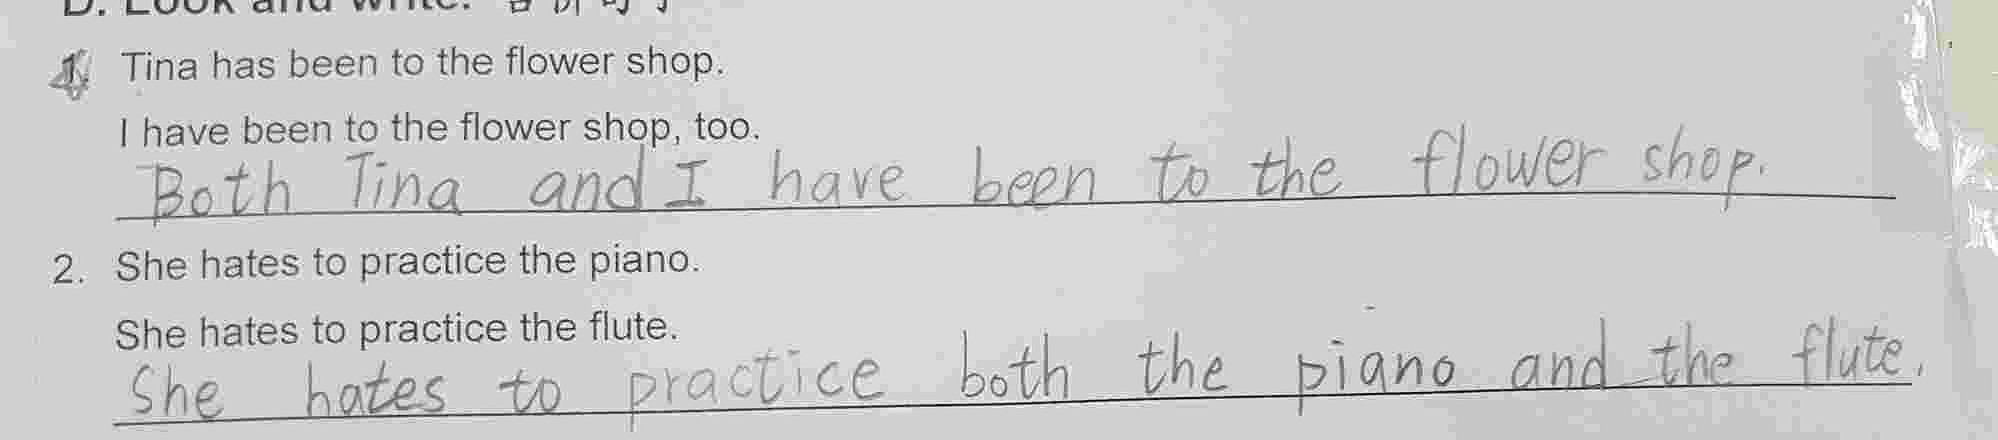 D. Look and write. 合併句子
1. Tina has been to the flower shop.
I have been to the flower shop, too.
Both Tina and I have been to the flower shop.
2. She hates to practice the piano.
She hates to practice the flute.
She hates to practice both the piano and the flute.